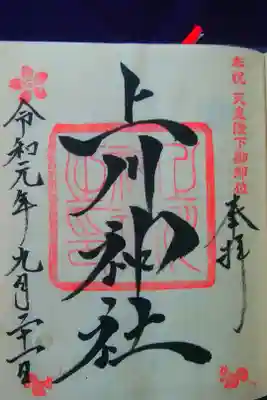 奉祝 天皇陛下御即位
奉拝
上川神社
令和元年 九月二十一日